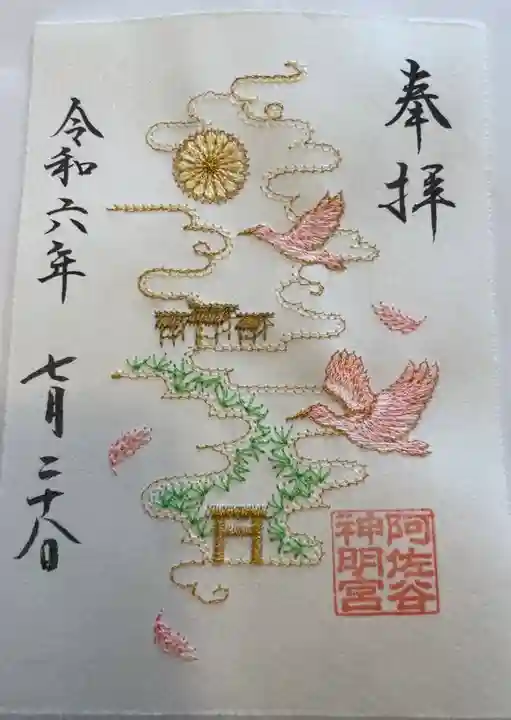 奉拝
阿佐谷
神明宮
令和六年 七月二十八日